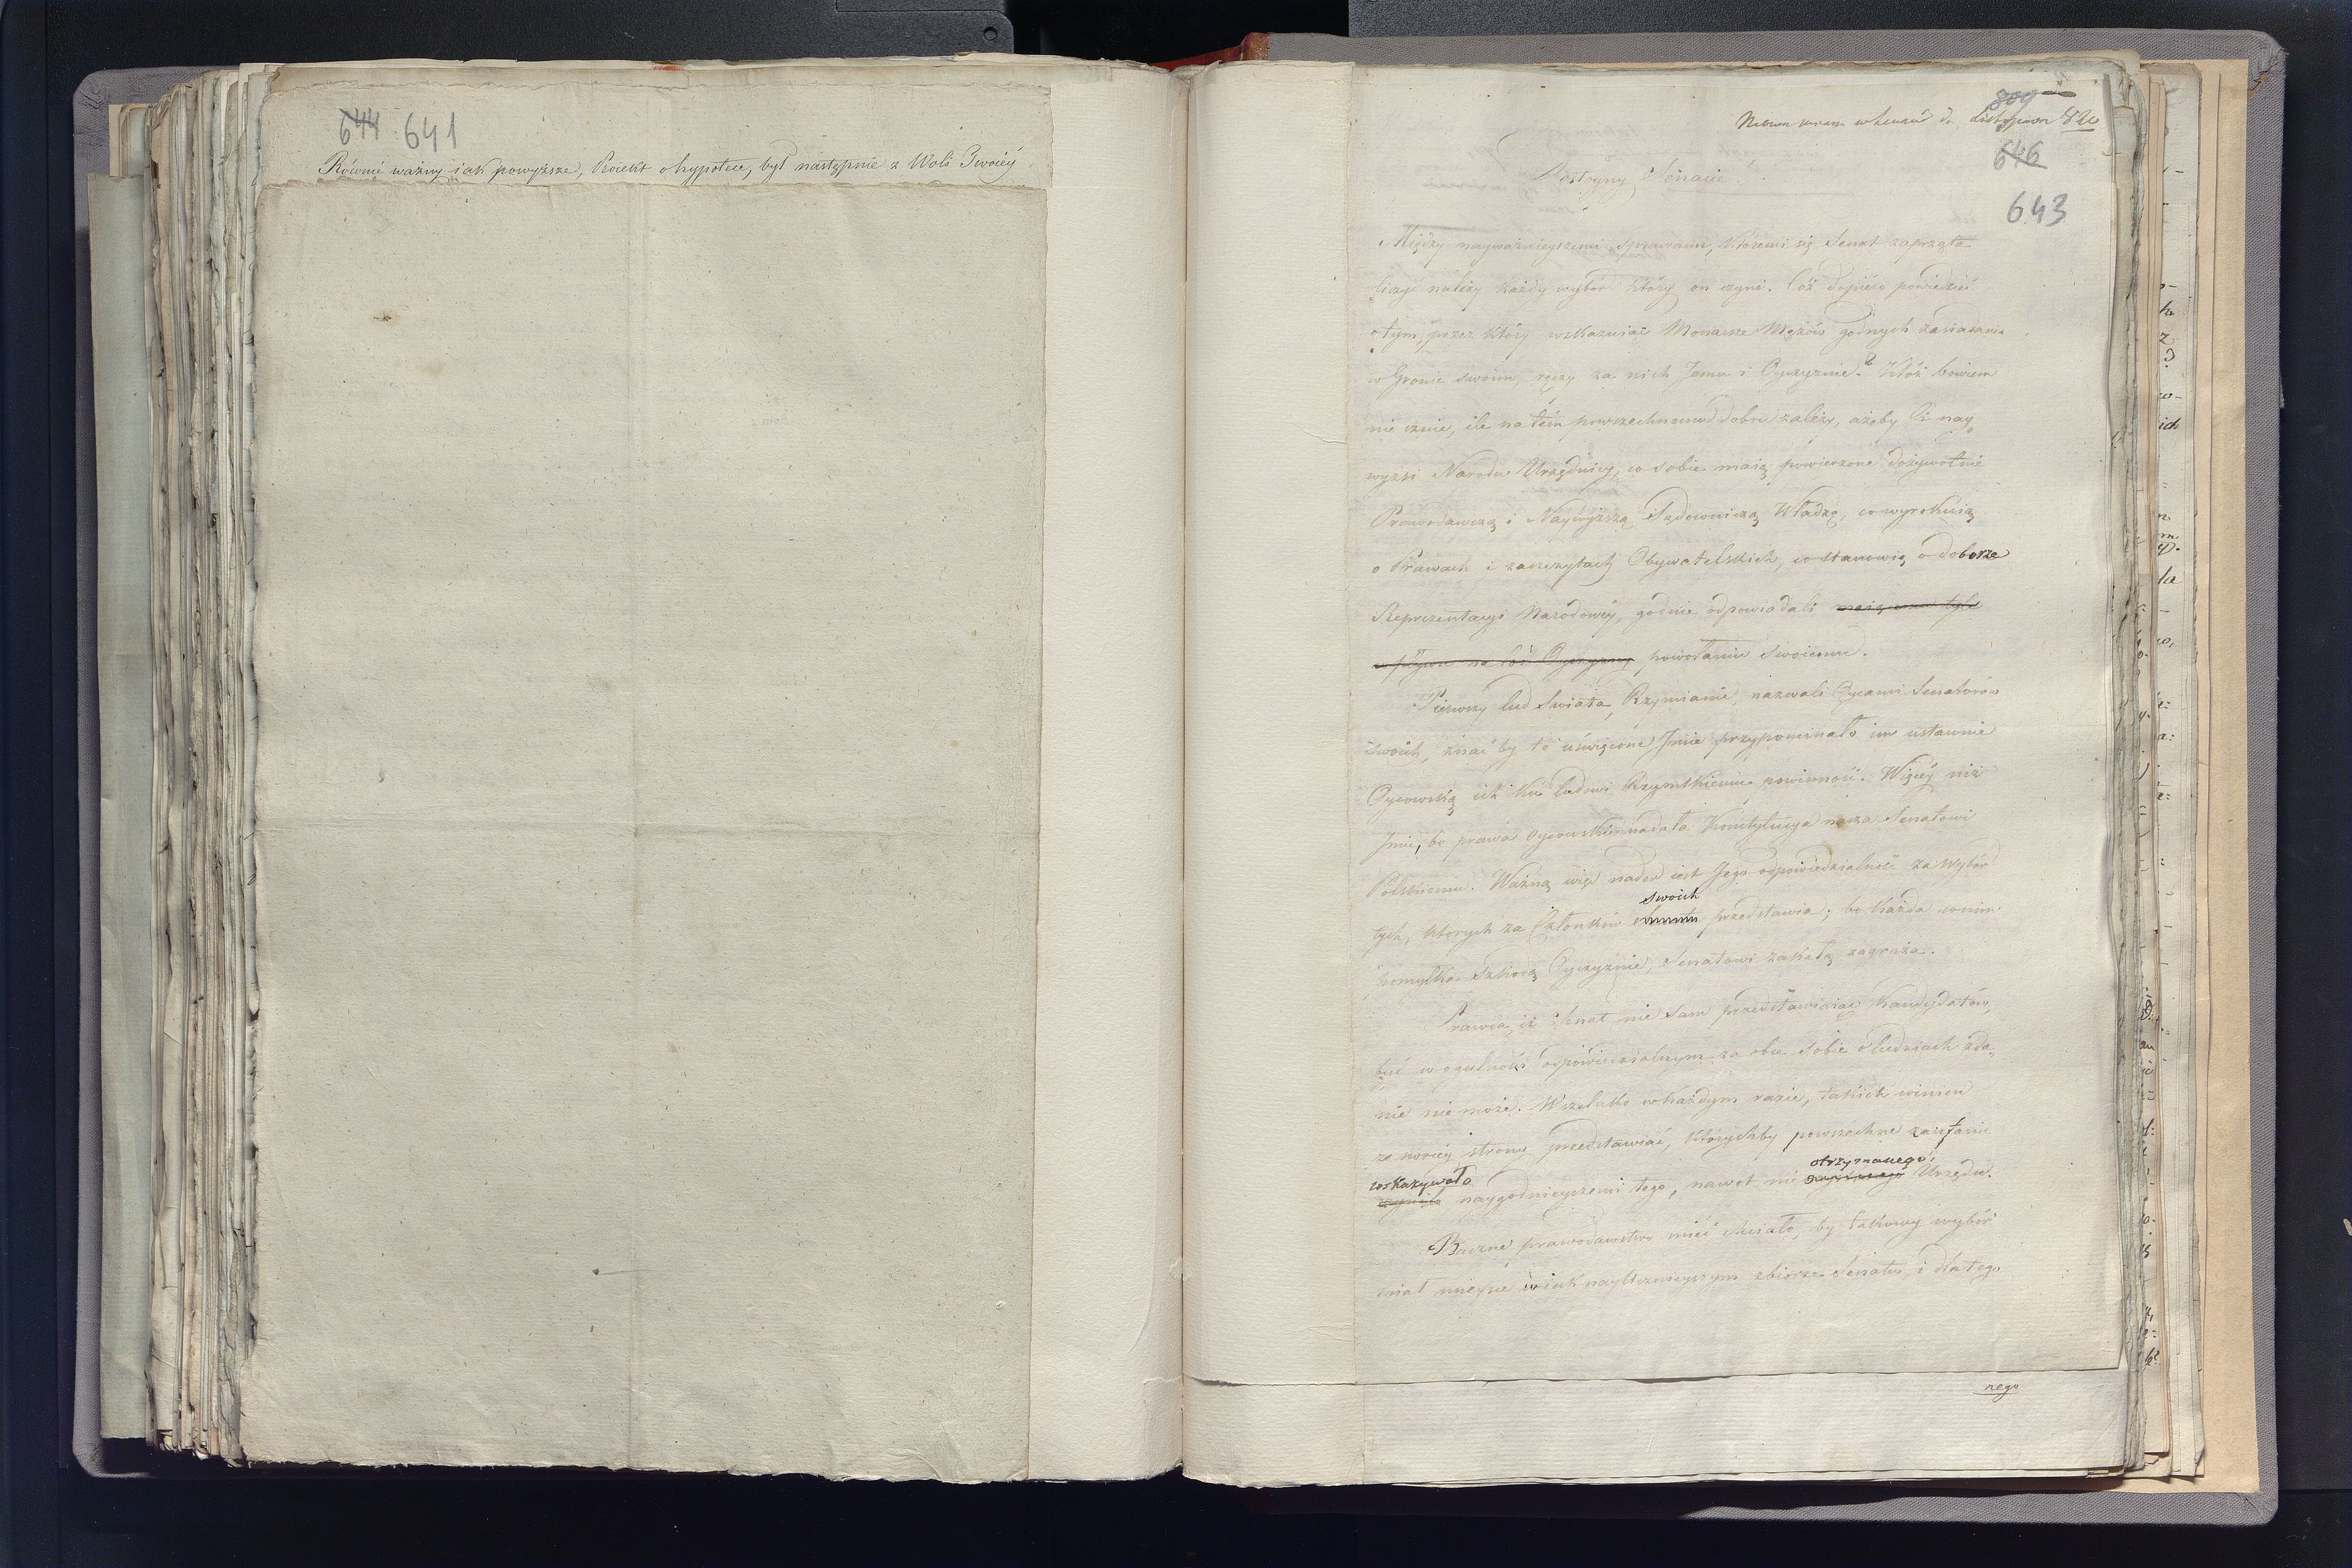 644 641
Równie ważny iak powyższe, Proiekt o hypotece, był następnie z Woli Twoiéy
809
Mowa miana w Senacie d. Listopada 820
646
Dostoyny Senacie!
643
Między nayważnieyszemi sprawami, któremi się Senat zaprząta
liczyć należy każdy wybór który on czyni. Cóż dopiéro powiedzieć
o tym, przez który wskazuiąc Monarsze Mężów godnych zasiadania
w Gronie swoim, ręczy za nich Jemu i Oyczyznie? Któż bowiem
nie czuie, ile na tém powszechnemu dobru zależy, ażeby Ci nay„
wyżsi Narodu Urzędnicy, co sobie maią powierzone dożywotnie
Prawodawczą i Naywyższą Sądowniczą Władzę, co wyrokuią
o Prawach i zaszczytach Obywatelskich, co stanowią o doborze
Reprezentacyi Narodowéy, godnie odpowiadali maiącemu tyle
wpływu na los Oyczyzny powołaniu swoiemu.
Piérwszy lud Świata, Rzymianie, nazwali Oycami Senatorów
swoich, znać by to uświęcone Jmie przypominało im ustawnie
Oycowską ich ku ludowi Rzymskiemu powinność. Więcéy niż
Jmie, bo prawa Oycowskie nadała Konstytucya nasza Senatowi
Polskiemu. Ważną więc nader iest Jego odpowiedzialność za wybór
swoich
tych, których za Członków przedstawia; bo każda w nim
pomyłka szkodą Oyczyznie, Senatowi zakałą zagraża.
Prawda, iż Senat nie sam przedstawiaiąc Kandydatów,
bydź w ogulności odpowiedzialnym za obce sobie o ludziach zda„
nie nie może. Wszelako w każdym razie, takich winien
ze swoiéy strony przedstawiać, którychby powszechne zaufanie
wskazywało otrzymanego
naygodnieyszemi tego, nawet nie Urzędu.
Baczne prawodawstwo mieć chciało, by takowy wybór
miał mieysce w iak nayliczniejszym zbiorze Senatu, i dla tego
nego